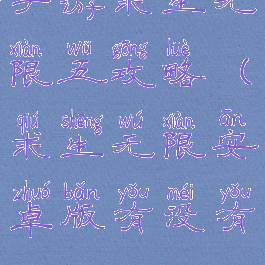 求生无
xiàn wǔ gōng lüè
限五攻略（
qiú shēng wú xiàn ān
求生无限安
zhuó bǎn yǒu méi yǒu
卓版有没有